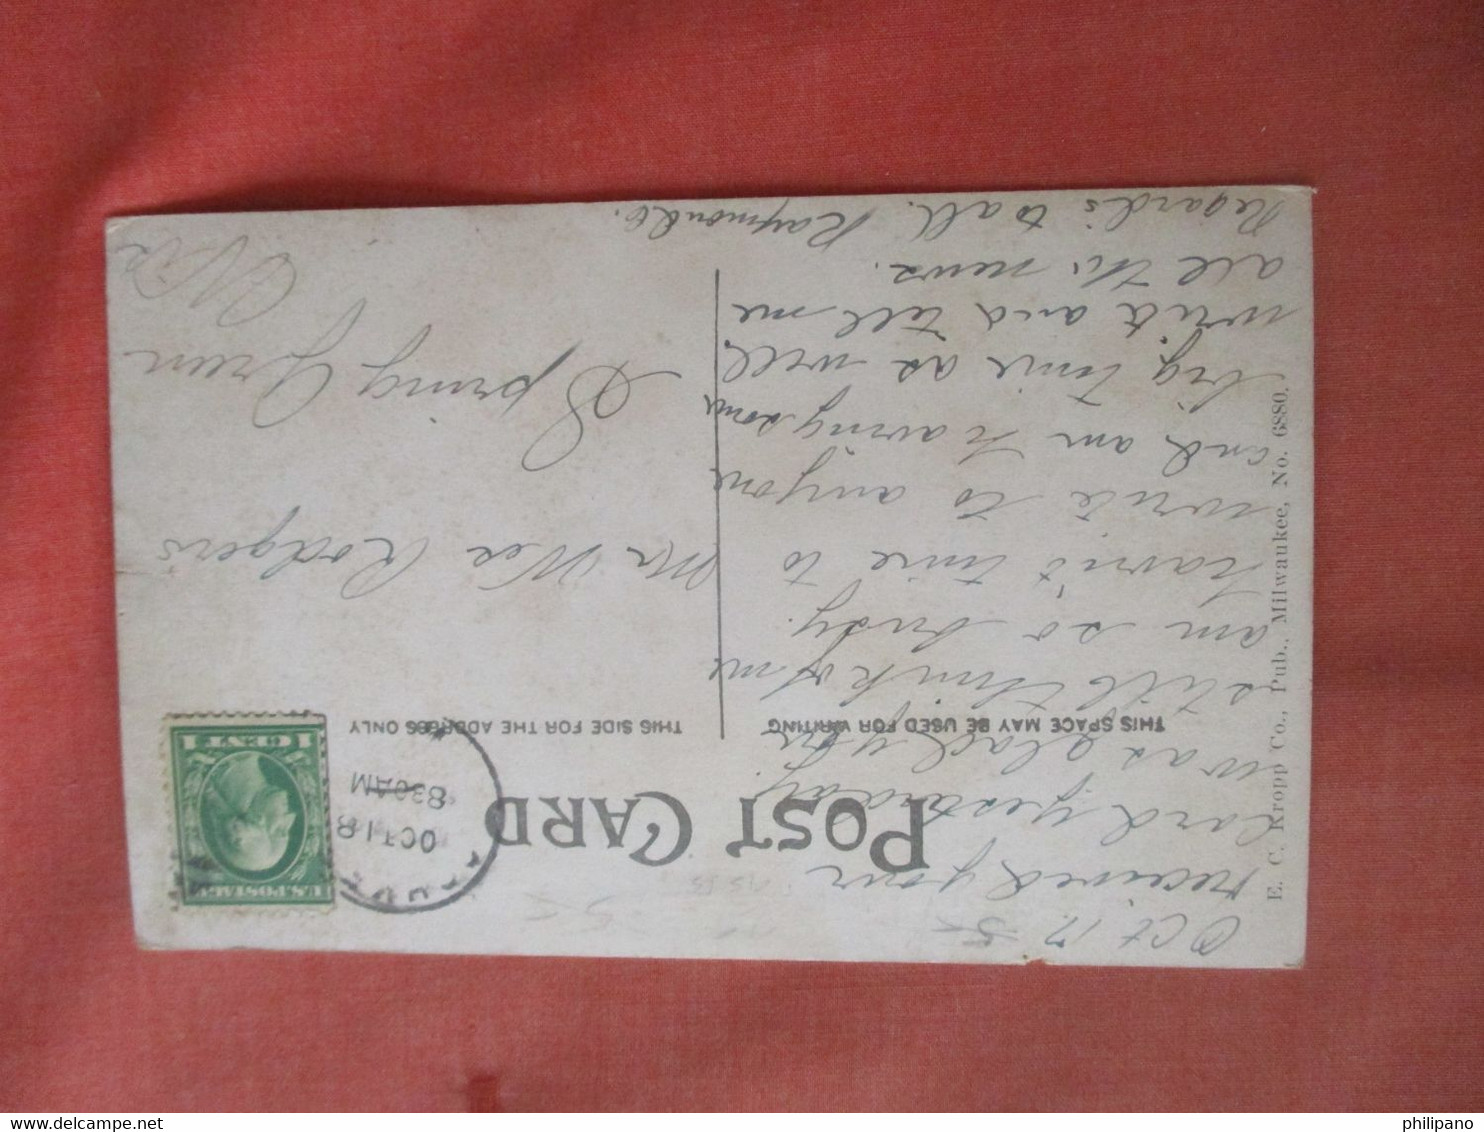 POST CARD
THIS SPACE MAY BE USED FOR WRITING
THIS SIDE FOR THE ADDRESS ONLY
Oct 17.
received your
card yesterday.
was glad you
still think of me
am so busy.
havn't time to
write to anyone
and am having some
big time as well.
write and tell me
all the news.
Regards to all. Raymond
Rodgers
Spring Green
Wis
OCT 18
830AM
U.S.POSTAGE
1 CENT 1
E. C. Kropp Co., Pub., Milwaukee, No. 6880.
delcampe.net
philipano